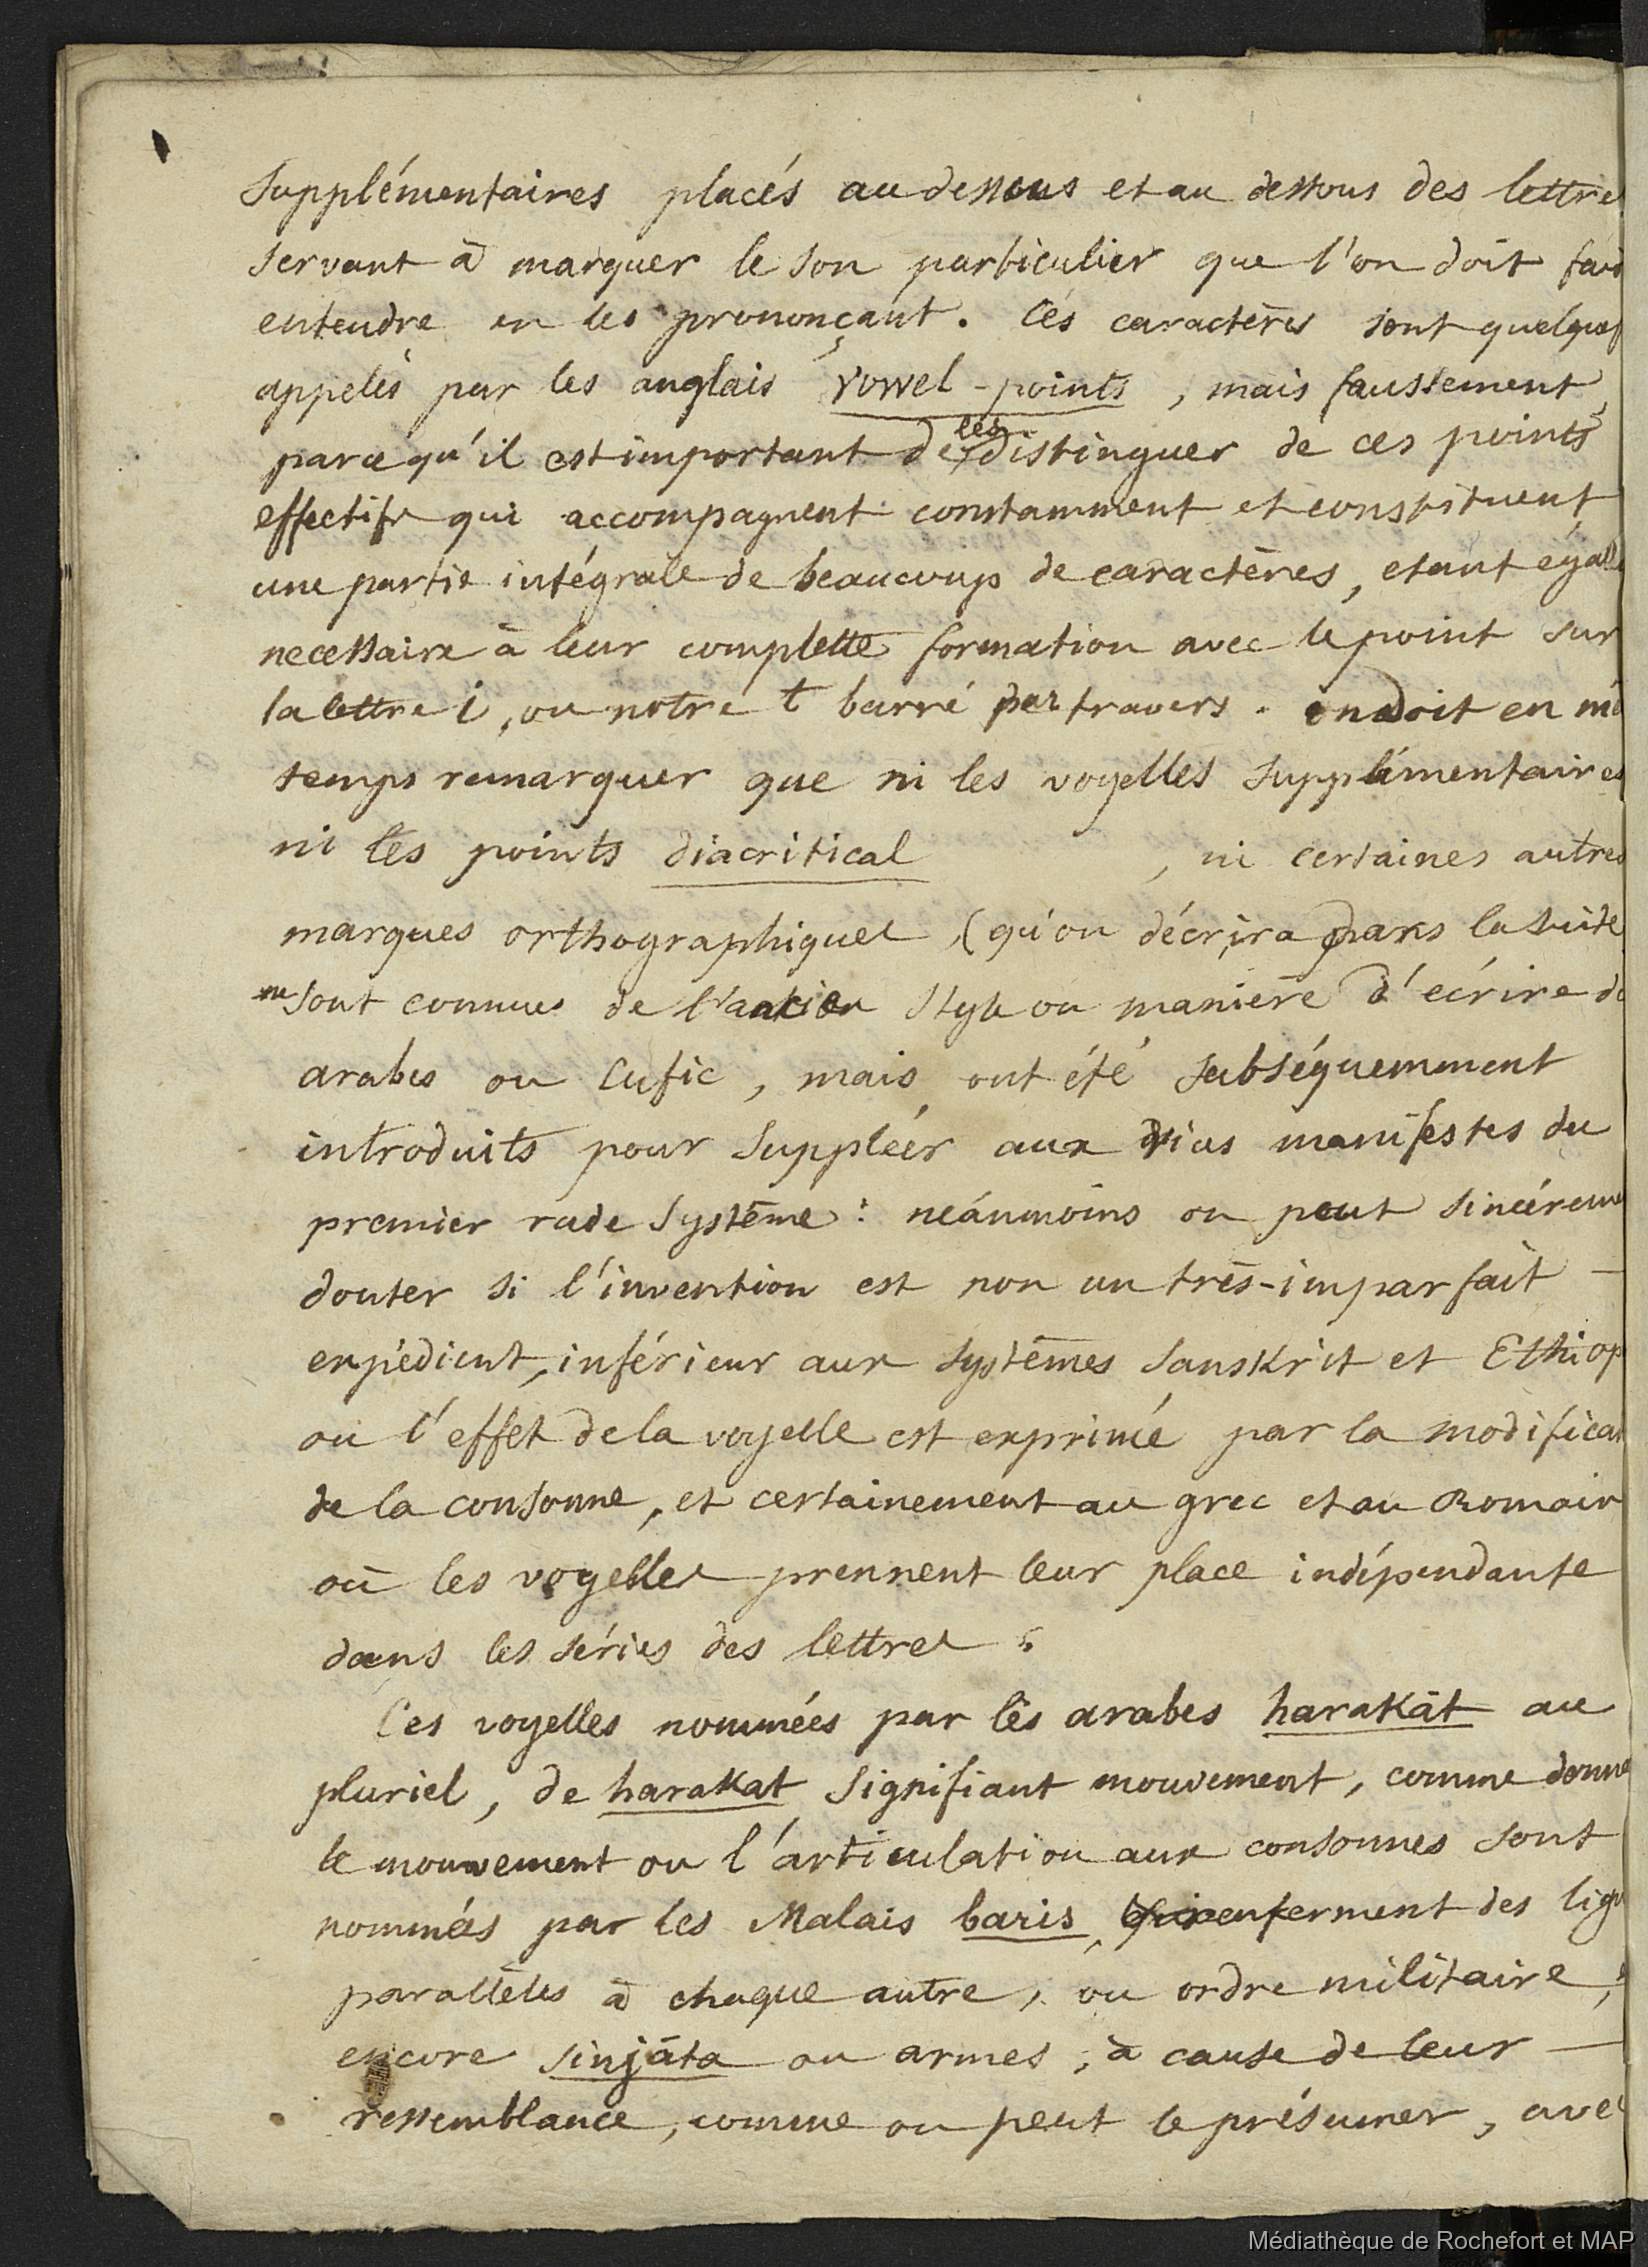 Supplémentaires placés au dessus et au dessous des lettres
servant à marquer le son particulier que l'on doit fair
entendre en les prononçant. Ces caractères sont quelquef
appelés par les anglais vowel-points, mais faussement,
parce qu'il est important de les distinguer de ces points
effectifs qui accompagnent constamment et constituent
une partie intégrale de beaucoup de caractères, etant egall
necessaire à leur complette formation avec le point sur
la lettre i, ou notre t barré par travers. on doit en mê
temps remarquer que ni les voyelles supplémentaires
ni les points diacritical , ni certaines autres
marques orthographiques (qu'on décrira dans la suite
ne sont connues de l'ancien style ou manière d'écrire de
arabes ou Cufic, mais ont été subséquemment
introduits pour suppléer aux vices manifestes du
premier rude système : neánmoins on peut sincéreme
douter si l'invention est non un très-imparfait —
expédient, inférieur aux systèmes Sanskrit et Ethiop
où l'effet de la voyelle est exprimé par la modificat
de la consonne, et certainement au grec et au Romain
où les voyelles prennent leur place indépendante
dans les séries des lettres.
Ces voyelles nommées par les arabes harakāt au
pluriel, de harakat signifiant mouvement, comme donne
le mouvement ou l'articulation aux consonnes sont
nommés par les Malais baris, renferment des lign
parallèles à chaque autre, ou ordre militaire,
encore sinjāta ou armes, à cause de leur —
ressemblance, comme on peut le présumer, avec
Médiathèque de Rochefort et MAP